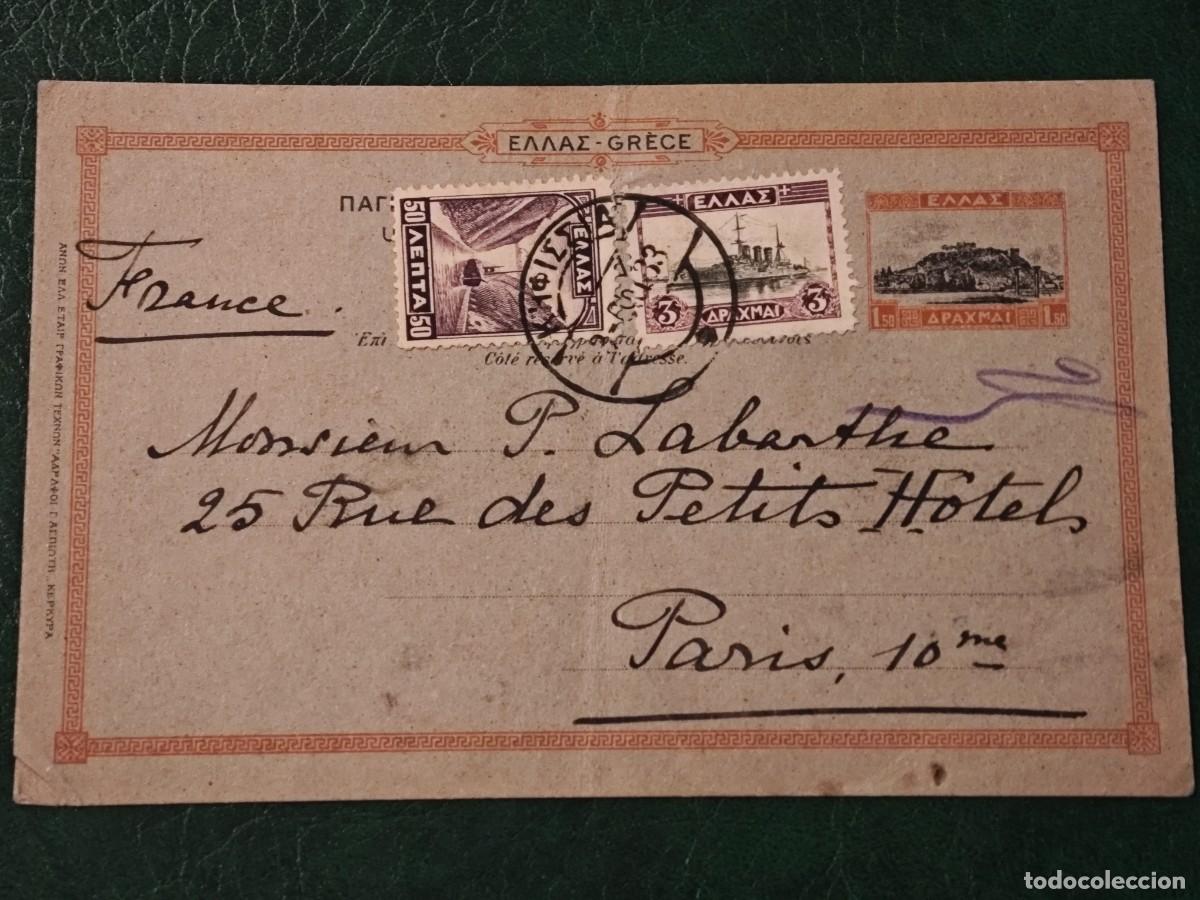 ΕΛΛΑΣ - GRÈCE
ΕΛΛΑΣ
50 ΛΕΠΤΑ 50
ΕΛΛΑΣ
3 ΔΡΑΧΜΑΙ 3
ΕΛΛΑΣ
1.50 ΔΡΑΧΜΑΙ 1.50
ΚΗΦΙΣΙΑ
33
France
Côté réservé à l'adresse.
Monsieur P. Labarthe
25 Rue des Petits Hotels
Paris, 10me
ΑΝΩΝ ΕΛΛ ΕΤΑΙΡ ΓΡΑΦΙΚΩΝ ΤΕΧΝΩΝ "ΑΔΕΛΦΟΙ Γ ΑΣΠΙΩΤΗ" ΚΕΡΚΥΡΑ
todocoleccion